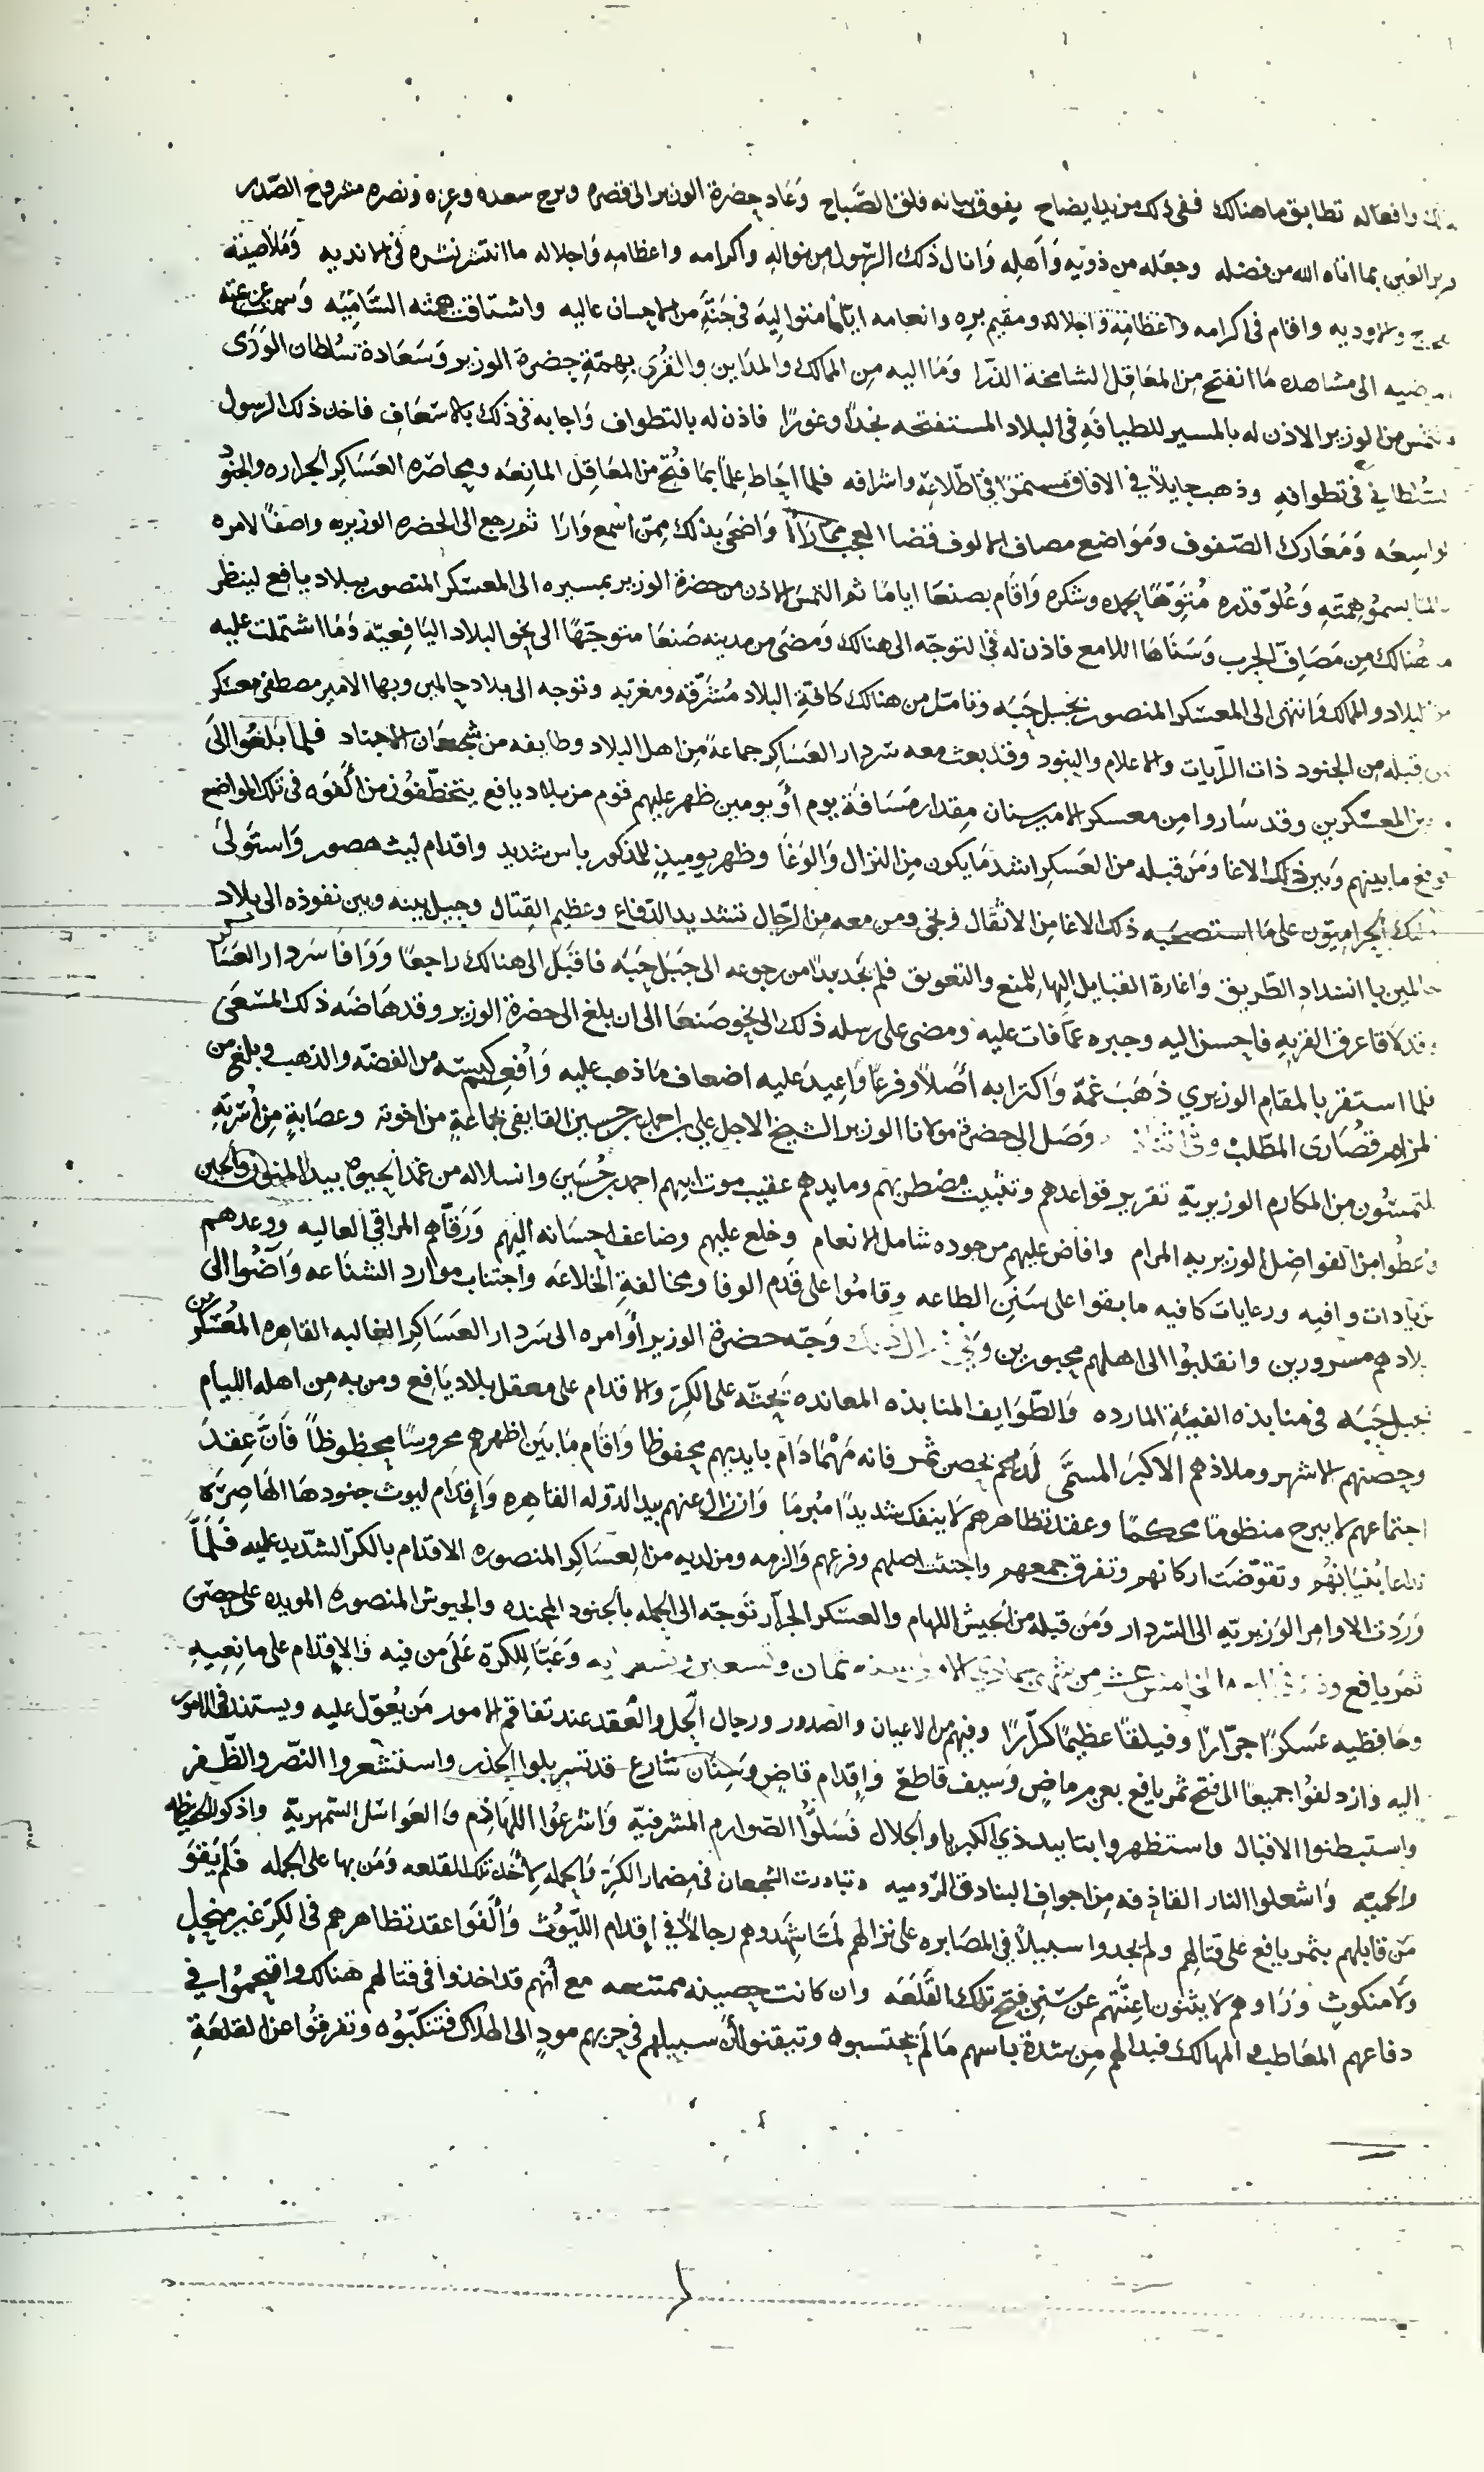 وافعاله تطابق ما هنالك ففى ذلك مزيد ايضاح يفوق بيانه فلق الصَّباح وَعَاد حضرة الوزير الى قصره وبرج سعده وعزه ونصره مشروح الصّدر
قرير العين بما اتاه الله من فضله وجعله من ذويّه وَأَهله وَانال ذلك الرّسول من نواله واكرامه واعظامه وَاجلاله ما انتشر نشره فى الانديه
والاوديه واقام فى اكرامه واعظامه وَاجلاله ومقيم بره وانعامه ايّامًا متواليةً فى جَنَّةٍ من الاحسان عاليه واشتاقت همّته السَّاميّه وَسمت عزيمته
الى مشاهده مَا انفتح من المعَاقِل الشامخة الذّرا وَمَا اليه مِن الممالك والمدَاين والقُرَى بِهِمّةِ حضرة الوزير وَسَعَادة سُلطان الوَرَى
من الوزير الاذن له بالمسير للطيافَةِ فى البلاد المستفتحه نجدًا وغورًا فاذن له بالتطواف وَاجابه فى ذلك بالاسعَاف فاخذ ذلك الرسول
السُّلطانى فى تطوافه وذهب جايلاً فى الافاق مستمرًّا فى اطّلاعِهِ واشرافه فلما احَاط علمًا بمَا فُتح من المعَاقِل المانعَه ومحاصَره العسَاكر الجراره والجنود
الواسِعَه وَمَعَارك الصّفوف وَمَوَاضع مصاف الالوف قضا العجب ممّا رَآهُ وَاضحَى بذلك ممّن اسمع وَارَا ثم رجع الى الحضره الوزيريه واصفًا لامره
بسموّ هِمَّتِهِ وَعُلوّ قدره مُنَوِّهًا بحمده وشكره وَاقَام بصنعَا ايامًا ثم التمس الاذن من حضرة الوزير بمسيره الى المعسكر المنصور ببلاد يافع لينظر
هُنالك مِن مَصَافّ الحرب وَسَنَاهَا اللامع فاذن له فى التوجّه الى هنالك وَمضَى من مدينه صَنعَا متوجّهًا الى نحو البلاد اليَافعِيّه وَمَا اشتملت عليه
من البلاد والممالك وَانتهى الى المعسكر المنصور بجبل حَبَه وتامّل من هنالك كافّةِ البلاد مُشَرَّقه ومغربه وتوجه الى بلاد حالمين وبها الامير مصطفى معسكر
قبله من الجنود ذات الرَّايات والاعلام والبنود وقد بعث معه سَردار العَسَاكر جماعة من اهل البلاد وطايفه من شجعَان الاجناد فلما بَلغُوا الى
بين المعسكرين وقد سَاروا من معسكر الامير سنان مِقدار مَسَافَة يوم أَو يومين ظهر عليهم قوم من بلاد يافع يتخطّفُون من أَلفَوه فى تلك المواضع
فوقع ما بينهم وَبين ذلك الاغا وَمَن قبله من العسكر اشد مَا يكون من النزال وَالوَغَا وظهر يوميذٍ للمذكور باس شديد واقدام ليث هصور وَاستَولَى
الحراميّون على مَا استصحبَه ذلك الاغا من الاثقال ونجى ومن معه من الرّجال بتشديد الدّفاع وعظيم القِتال وحيل بينه وبين نفوذه الى بلاد
حالمين بانسداد الطّريق وَاغارة القبَايل اليها للمنع والتعويق فلم يجد بدًّا من رجوعه الى جَبَل حَبَه فاقبَل الى هنالك راجعًا وَوَافَا سَردار العَسَاكر
فاحسن اليه وجبره عمّا فات عليه ومضى على رسله ذلك الى نحو صَنعَا الى ان بلغ الى حضرة الوزير وقد هَاضَه ذلك المسْعَى
فلما استقر بالمقام الوزيرى ذَهَبَ غمّه وَاكترابه أصْلاً وفرعًا وَاعِيدَ عليه اضعاف مَا ذهب عليه وَأُفعِمَ كيسه من الفضّه والذهب وبلغ من
المرَام قصُارَى المطّلب وَصَل الى حضرة مولانا الوزير الشيخ الاجل على بن احمد بن حسين القايفى بجماعةٍ من اخوته وعصَابةٍ مِن أُسْرتهِ
يلتمسُون من المكارم الوزيريّة تقرير قواعدهم وتثبيت مضطربهم ومايدهم عقيب موت ابيهم احمد بن حُسَين وانسلاله من غمد الحيوه بيد المنون والحين
فاعطُوا من الفواضِل الوزيريه المرام وافاض عليهم من جوده شامل الانعام وخلع عليهم وضاعف احسَانه اليهم وَرَقّاهم المراقى العاليه ووعدهم
بزيادات وافيه ورعايات كافيه ما بقوا على سَنَنِ الطاعه وقامُوا على قدَم الوفا ومخالفةِ الخلاعَه واجتناب موارد الشنَاعه وَآضُوا الى
بلادهم مسرورين وانقلبُوا الى اهلهم محبورين وَجّه حضرة الوزير أَوامره الى سَردار العسَاكر الغالبه القاهره المُعَسكر
بجبل حَبَه فى منابذه الفِئةِ المارده وَالطّوَايف المنابذه المعانده يحثّه على الكرّ والاقدام على معقل بلاد يَافِع ومن به مِن اهله الليام
وحصنهم الاشهر وملاذهم الاكبر المسَمَّى لَديهم بحصن ثمر فانه مَهْمَا دَام بايديهم محفوظا وَاقَام مَا بَين اظهرهم محروسًا محظوظًا فَاِنَّ عِقدَ
اجتماعهم لا يبرح منظومًا محكمًا وعقد تظاهرهم لا ينفك شديدًا مُبرمًا وَان زال عنهم بيد الدوله القاهره وَإِقدَام ليوث جنودهَا الهَاصِرَه
تداعَا بُنيَانهُم وتقوّضَت اركانهم وتفرق جمعهم واجتثت اصلهم وفرعهم وَالزمه ومن لديه من العسَاكر المنصوره الاقدام بالكرّ الشّديد عليه فَلَمَّا
وَرَدت الاوامر الوَزيريّه الى السّردار وَمَن قبله من الجيش اللهام والعسَكر الجرّار تَوجّه الى الحمله بالجنود المجنده والجيوش المنصوره المويده على حِصن
ثمَر يافع من شهر جمادى ثمان وتسعين وَعَبَّا للكرّه عَلَى مَن فيه وَالاقدام على مانِعِيهِ
وحَافظيه عَسكرًا جرّارًا وفيلقًا عظيمًا كرّارًا وفيهم من الاعيان والصدور ورجال الحل والعقد عند تفاقم الامور مَن يُعوّل عليه ويستند فى الامور
اليه وَازدلفُوا جميعًا الى فتح ثمر يافع بعزم ماضٍ وَسيف قاطع وَإِقدام قاضٍ وَسِنَان شارع قد تسربلوا الحذر واستشعروا النصّر والظّفر
واستبطنوا الاقبال واستظهروا بتاييد ذى الكبريا والجلال فَسَلُّوا الصّوارم المشرفيّه وَاشرعُوا اللهَاذِم وَالعواسَل السّمهريّه واذكوا الحفيظه
والحميّه وَاشعلوا النار القاذفه مِن اجواف البنادق الرّوميه وتبادرت الشجعان فى مِضمار الكرّ وَالحمله لِأَخذ تلك القلعه وَمَن بها على الجمله فَلَم يَقوَ
مَن قابلهم بثمر يافع على قتالهم ولم يجدوا سبيلاً فى المصَابره على نزالهم لمّا شَهدوهم رجالاً فى اِقدام الليُوث وَأَلْفَوا عقد تظاهرهم فى الكرّ غير منحلٍ
ولا منكوثٍ وَرَاوهم لا يثنون اعِنَّتهم عن سَنن فتح تلك القَلْعَه وان كانت حصينه ممتنعه مع أنهم قد اخذوا فى قتالهم هنالك واقتحمُوا فى
دفاعهم المعَاطب والمهالك فبدا لهم مِن شدة باسهم مَا لم يحتسبوه وتيقنوا أَنّ سبيلهم فى حربهم مودٍ الى الهلاك فتنكّبُوه وتفرقُوا عن القلعَةِ